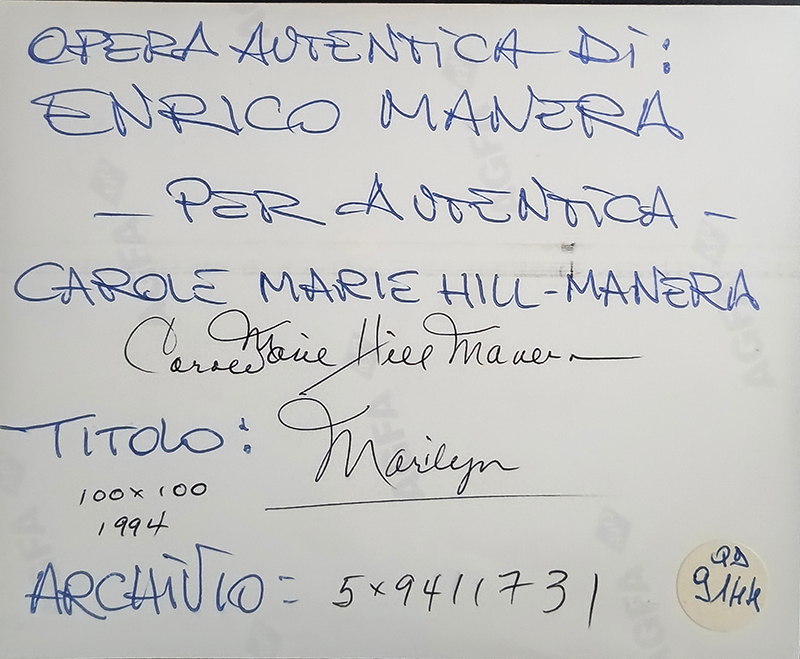 OPERA AUTENTICA DI:
ENRICO MANERA
— PER AUTENTICA —
CAROLE MARIE HILL-MANERA
Carole Marie Hill Manera
TITOLO: Marilyn
100x100
1994
ARCHIVIO: 5x9411731
AGFA